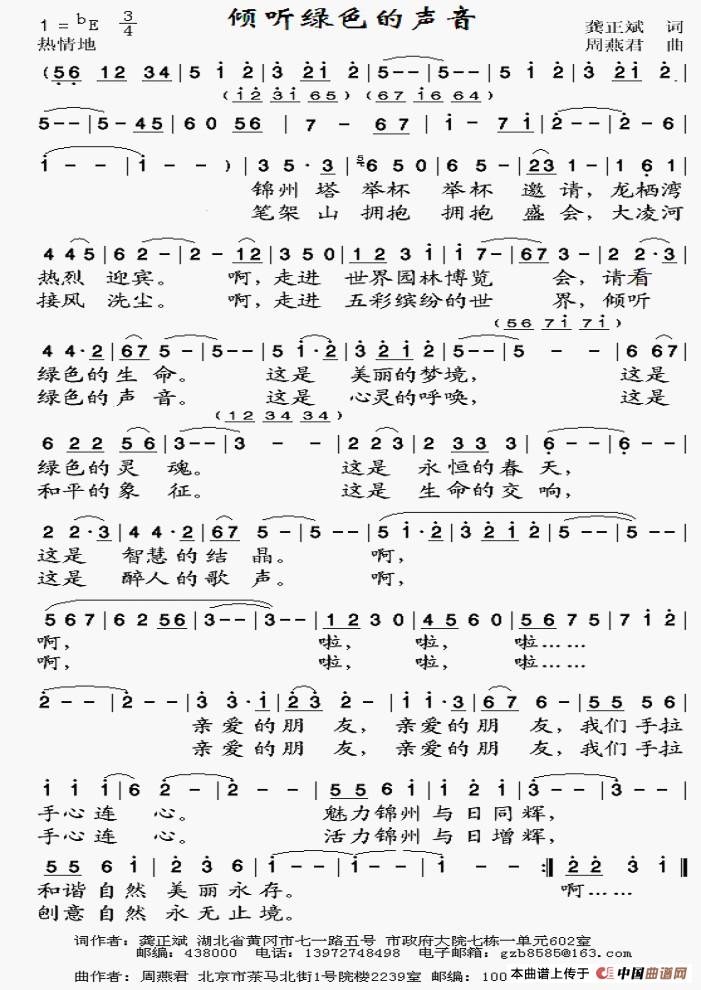 倾听绿色的声音
1=ᵇE 3/4
龚正斌 词
热情地
周燕君 曲
(56 12 34|5 i 2|3 2i 2|5--|5--|5 i 2|3 2i 2.|
(i2 3i 65) (67 i6 64)
5--|5-45|6 0 56|7 - 67|i - 7i|2--|2-6|
i--|i--)|3 5·3|6 5 0|6 5-|23 1-|1 6 1|
锦州塔举杯 举杯 邀请，龙栖湾
笔架山拥抱 拥抱 盛会，大凌河
4 45|6 2-|2-12|3 5 0|1 2 3 i|i 7-|67 3-|2 2·3|
热烈 迎宾。 啊，走进 世界园林博览 会，请看
接风 洗尘。 啊，走进 五彩缤纷的世 界，倾听
(56 7i 7i)
4 4·2|67 5-|5--|5 i·2|3 2 i 2|5--|5 - -|6 67|
绿色的生命。 这是 美丽的梦境， 这是
绿色的声音。 这是 心灵的呼唤， 这是
(12 34 34)
6 2 2 5 6|3--|3 - -|2 2 3|2 3 3 3|6--|6--|
绿色的灵 魂。 这是 永恒的春天，
和平的象 征。 这是 生命的交响，
2 2·3|4 4·2|67 5-|5--|5 i·2|3 2 i 2|5--|5--|
这是 智慧的结 晶。 啊，
这是 醉人的歌 声。 啊，
5 6 7|6 2 56|3--|3--|1 2 3 0|4 5 6 0|5 6 7 5|7 i 2|
啊， 啦， 啦， 啦……
啊， 啦， 啦， 啦……
2--|2--|3 3·i|23 2-|i i·3|67 6-|5 5 5 6|
亲爱的朋 友，亲爱的朋 友，我们手拉
亲爱的朋 友，亲爱的朋 友，我们手拉
i i i|6 2-|2--|5 5 6 i|i 2 i|3--|3--|
手心连 心。 魅力锦州与日同辉，
手心连 心。 活力锦州与日增辉，
5 5 6 i|2 3 6|i--|i--|i--:‖2 2 3|i--‖
和谐自然 美丽永存。 啊……
创意自然 永无止境。
词作者：龚正斌 湖北省黄冈市七一路五号 市政府大院七栋一单元602室
邮编：438000 电话：13972748498 电子邮箱：gzb8585@163.com
曲作者：周燕君 北京市茶马北街1号院楼2239室 邮编：100
本曲谱上传于 中国曲谱网